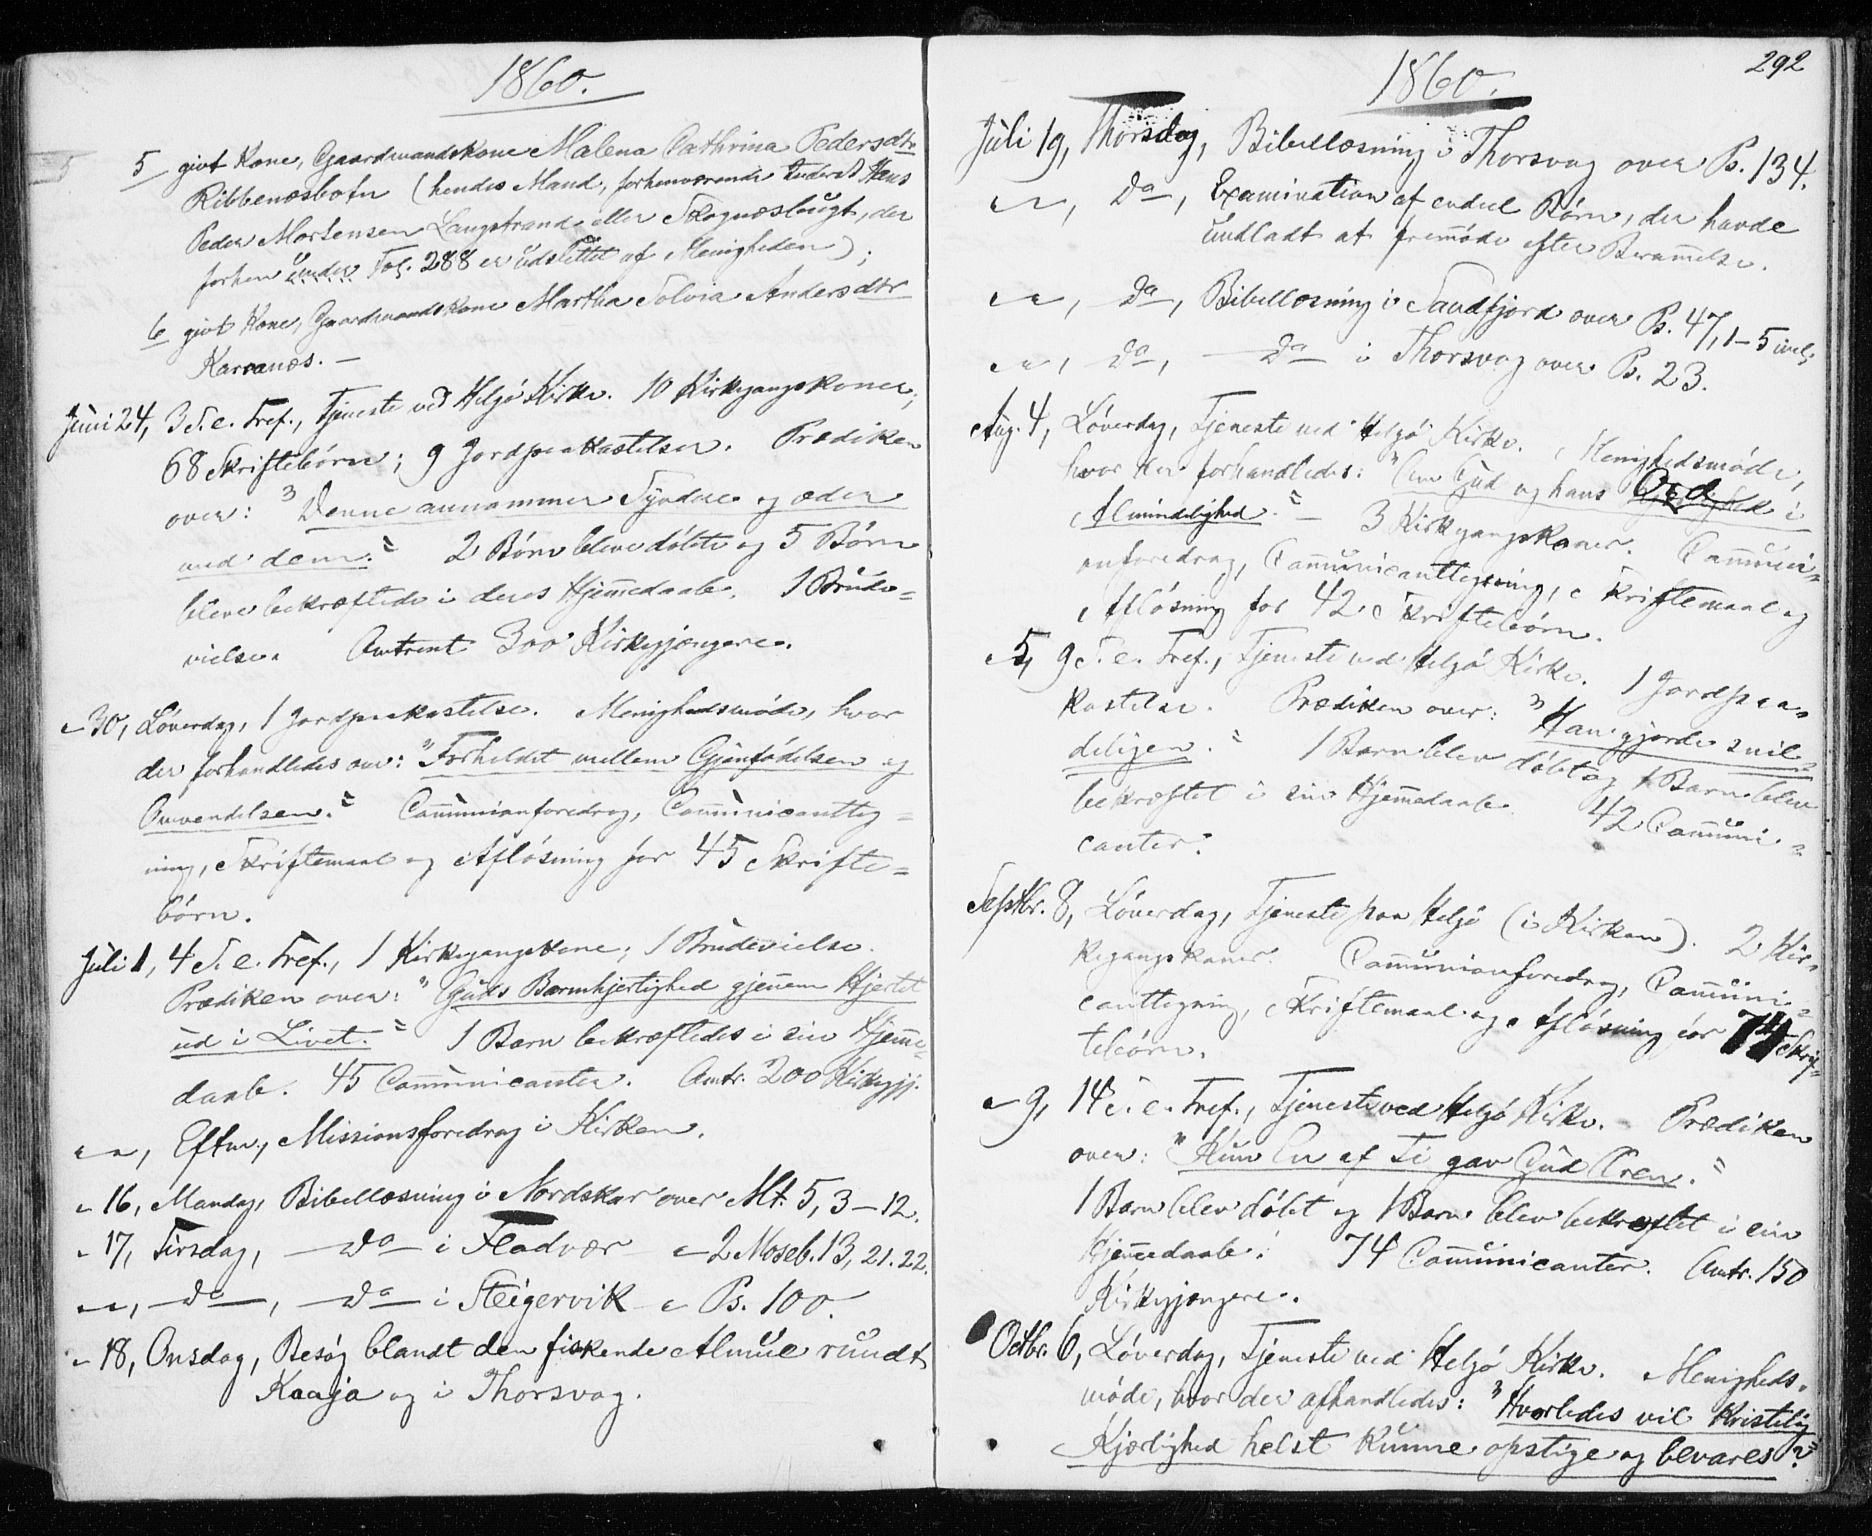 1860.
5 givt Kone, Gaardmandskone Malena Cathrina Pedersdtr
Ribbenæsbotn (hendes Mand, forhenværende Hans
Peder Mortensen Langstrand eller Skognæsbugt, der
forhen under Fol. 288 er udslettet af Menigheden);
6 givt Kone, Gaardmandskone Martha Solvia Andersdtr
Karvanæs. —
Juni 24, 3 S. e. Tref., Tjeneste ved Helgø Kirke. 10 Kirkegangskoner;
68 Skriftebørn; 9 Jordpaakastelser. Prædiken
over: "Denne annammer Syndere og æder
med dem." 2 Børn bleve døbte og 5 Børn
bleve bekræftede i deres Hjemedaab. 1 Brude=
vielse. Omtrent 300 Kirkegjængere.
" 30, Løverdag, 1 Jordpaakastelse. Menighedsmøde, hvor
der forhandledes over: "Forholdet mellem Gjenfødelsen og
Omvendelsen." Communionforedrag, Communicantteg=
ning, Skriftemaal og Afløsning for 45 Skrifte=
børn.
Juli 1, 4 S. e. Tref., 1 Kirkegangskone; 1 Brudevielse.
Prædiken over: "Guds Barmhjertighed gjennem Hjertet
ud i Livet." 1 Barn bekræftedes i sin Hjeme=
daab. 45 Communicanter. Omtr. 200 Kirkegj.
" ", Eftm., Missionsforedrag i Kirken.
" 16, Mandag, Bibellæsning i Nordskar over Mt. 5, 3–12.
" 17, Tirsdag, — Do — i Fladvær " 2 Moseb. 13, 21. 22.
" ", — Do —, — Do — i Steigervik " Ps. 100.
" 18, Onsdag, Besøg blandt den fiskende Almue rundt
Kaaja og i Thorsvag.
292
1860.
Juli 19, Thorsdag, Bibellæsning i Thorsvag over Ps. 134.
" ", Do, Examination af endeel Børn, der havde
undladt at fremmøde efter Berammelse.
" ", Do, Bibellæsning i Sandfjord over Ps. 47, 1–5 incl.
" ", Do, — Do — i Thorsvag over Ps. 23.
Aug. 4, Løverdag, Tjeneste ved Helgø Kirke. Menighedsmøde,
hvor der forhandledes: "Om Gud og hans Ord i
Almindelighed." — 3 Kirkegangskoner. Communi=
onforedrag, Communicanttegning, Skriftemaal og
Afløsning for 42 Skriftebørn.
" 5, 9 S. e. Tref., Tjeneste ved Helgø Kirke. 1 Jordpaa=
kastelse. Prædiken over: "Han gjorde snil=
deligen." 1 Barn blev døbt og 1 Barn blev
bekræftet i sin Hjemmedaab. 42 Communi=
canter.
Septbr. 8, Løverdag, Tjeneste paa Helgø (i Kirken). 2 Kir=
kegangskoner. Communionforedrag, Communi=
canttegning, Skriftemaal og Afløsning for 74 Skrif=
tebørn.
" 9, 14 S. e. Tref., Tjeneste ved Helgø Kirke. Prædiken
over: "Kun En af Ti gav Gud Æren."
1 Barn blev døbt og 1 Barn blev bekræftet i sin
Hjemmedaab. 74 Communicanter. Omtr. 150
Kirkegjængere.
Octbr. 6, Løverdag, Tjeneste ved Helgø Kirke. Menigheds=
møde, hvor der afhandledes: "Hvorledes vil kristelig
Kjærlighed helst kunne opstige og bevares?"